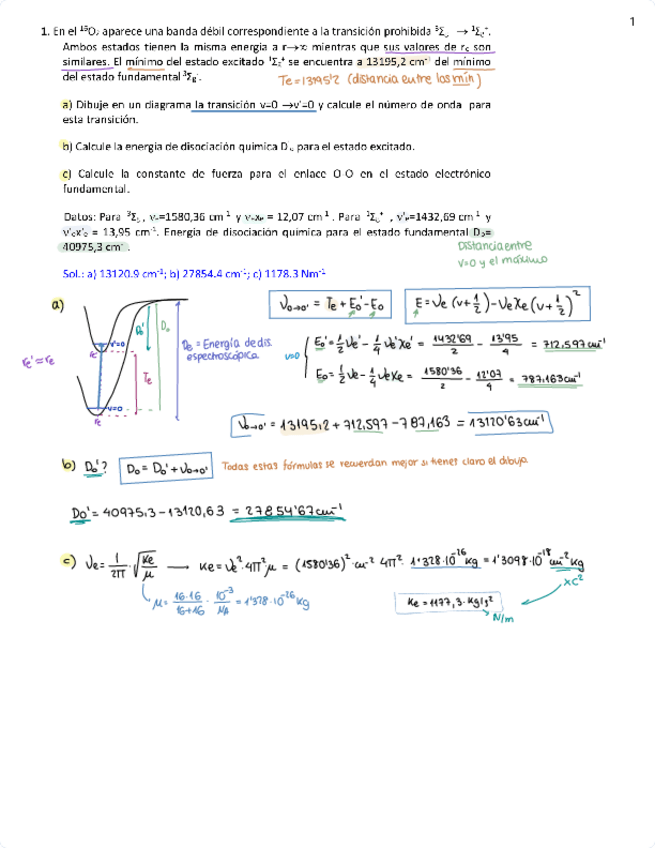 1
1. En el ¹⁶O₂ aparece una banda débil correspondiente a la transición prohibida ³Σ → ¹Σ
Ambos estados tienen la misma energía a r→∞ mientras que sus valores de rₑ son
similares. El mínimo del estado excitado ¹Σ⁺ se encuentra a 13195,2 cm⁻¹ del mínimo
del estado fundamental ³Σ. Te=13195'2 (distancia entre los mín)
a) Dibuje en un diagrama la transición v=0 →v'=0 y calcule el número de onda para
esta transición.
b) Calcule la energía de disociación química D₀ para el estado excitado.
c) Calcule la constante de fuerza para el enlace O-O en el estado electrónico
fundamental.
Datos: Para ³Σ, νₑ=1580,36 cm⁻¹ y νₑxₑ = 12,07 cm⁻¹. Para ¹Σ⁺, ν'ₑ=1432,69 cm⁻¹ y
ν'ₑx'ₑ = 13,95 cm⁻¹. Energía de disociación química para el estado fundamental D₀=
40975,3 cm⁻¹. Distancia entre
v=0 y el máximo
Sol.: a) 13120.9 cm⁻¹; b) 27854.4 cm⁻¹; c) 1178.3 Nm⁻¹
a)
re'≈re
v'=0
re
D₀'
D₀
Te
v=0
re
De = Energía de dis.
espectroscópica.
ν₀→₀' = Te + E₀' - E₀
E = νe (v+1/2) - νeXe (v+1/2)²
v=0
E₀' = 1/2 νe' - 1/4 νe'Xe' = 1432'69/2 - 13'95/4 = 712,597 cm⁻¹
E₀ = 1/2 νe - 1/4 νeXe = 1580'36/2 - 12'07/4 = 787,163 cm⁻¹
ν₀→₀' = 13195,2 + 712,597 - 787,163 = 13120'63 cm⁻¹
b) D₀'? D₀ = D₀' + ν₀→₀' Todas estas fórmulas se recuerdan mejor si tienes claro el dibujo
D₀' = 40975,3 - 13120,63 = 27854'67 cm⁻¹
c) νe = 1/2π · √(Ke/μ) → Ke = νe² · 4π² μ = (1580'36)² · cm⁻² 4π² · 1'328·10⁻²⁶ kg = 1'3098·10⁻¹⁸ cm⁻² kg
μ = 16·16/16+16 · 10⁻³/NA = 1'328·10⁻²⁶ kg
xc²
Ke = 1177,3 · kg/s²
N/m